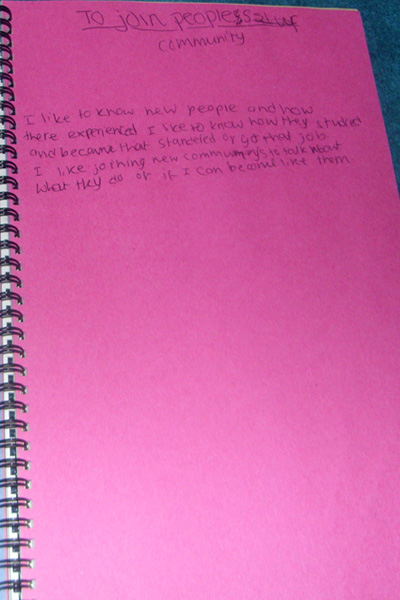 To join people
community
I like to know new people and how
there experienced I like to know how they studied
and became that standeled or got that job
I like joining new communitys to talk about
what they do or if I can become like them